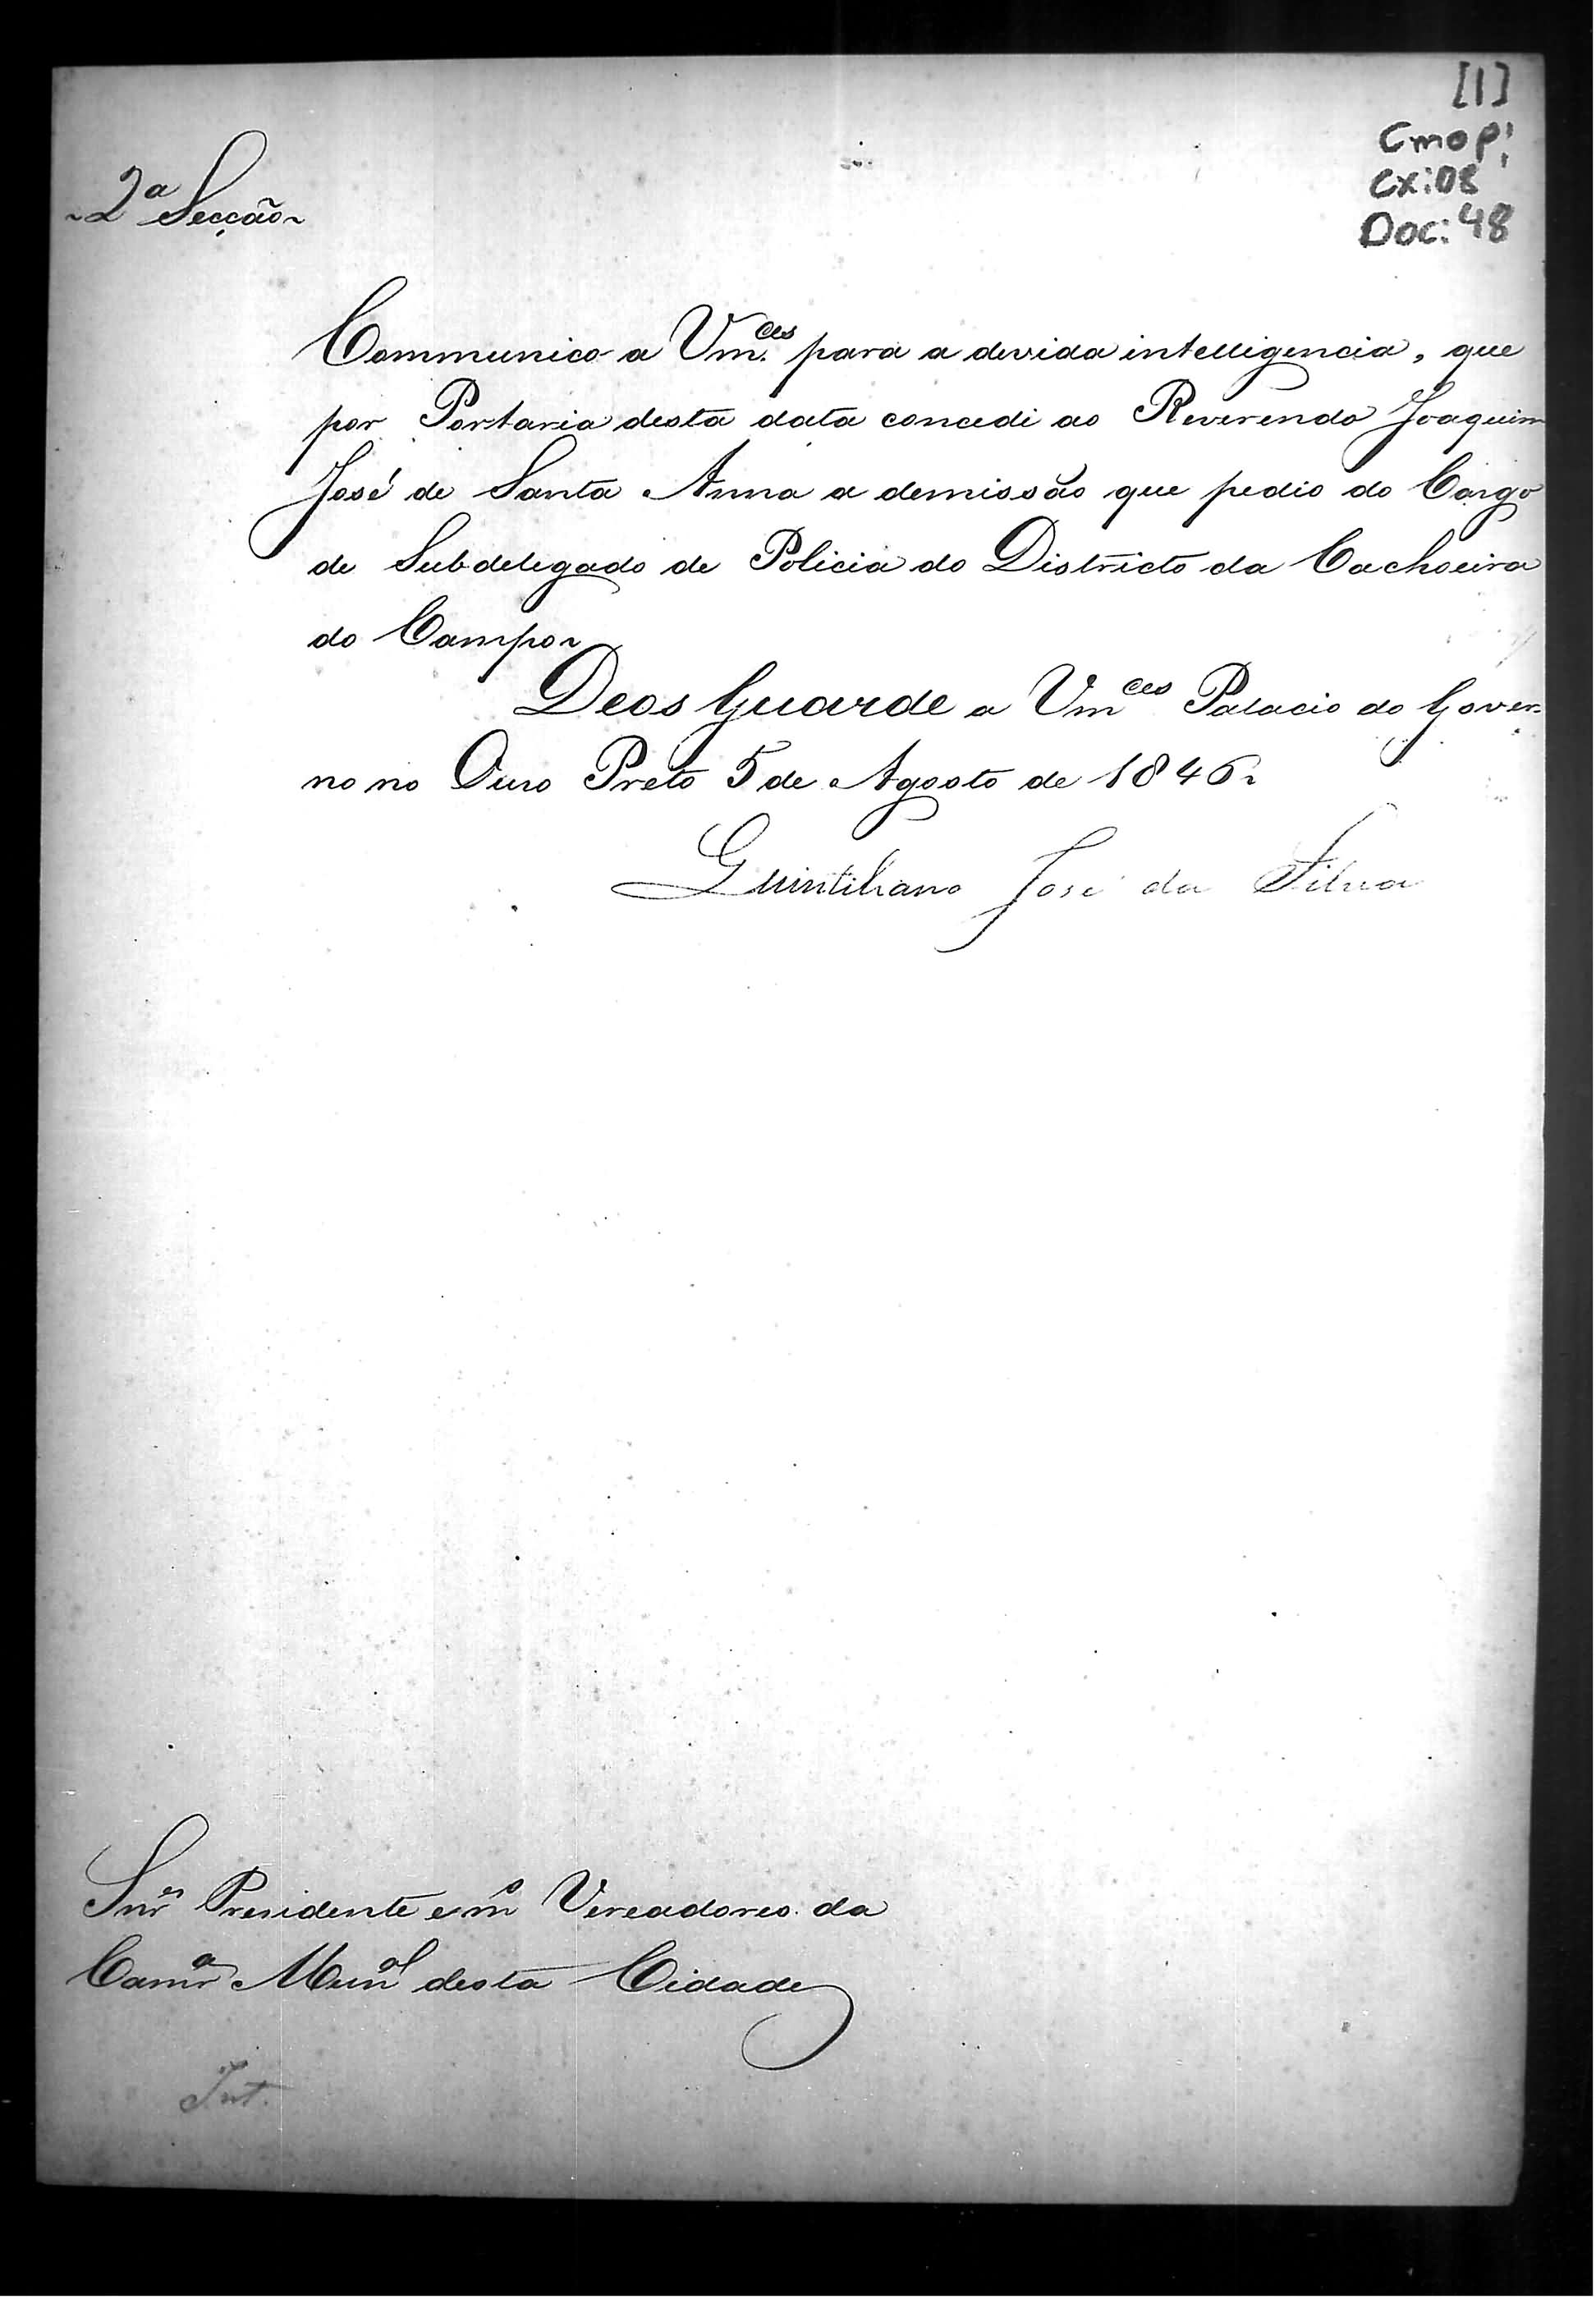 [1]
Cmop:
Cx:08
Doc:48
~2ª Secção~
Communico a Vm.ces para a devida intelligencia, que
por Portaria desta data concedi ao Reverendo Joaquim
José de Santa Anna a demissão que pedio do Cargo
de Subdelegado de Policia do Districto da Cachoeira
do Campo~
Deos Guarde a Vmces Palacio do Gover-
no no Ouro Preto 5 de Agosto de 1846~
Quintiliano José da Silva
Snr.es Presidente e m.s Vereadores da
Camr.a Mun.al desta Cidade
Int.